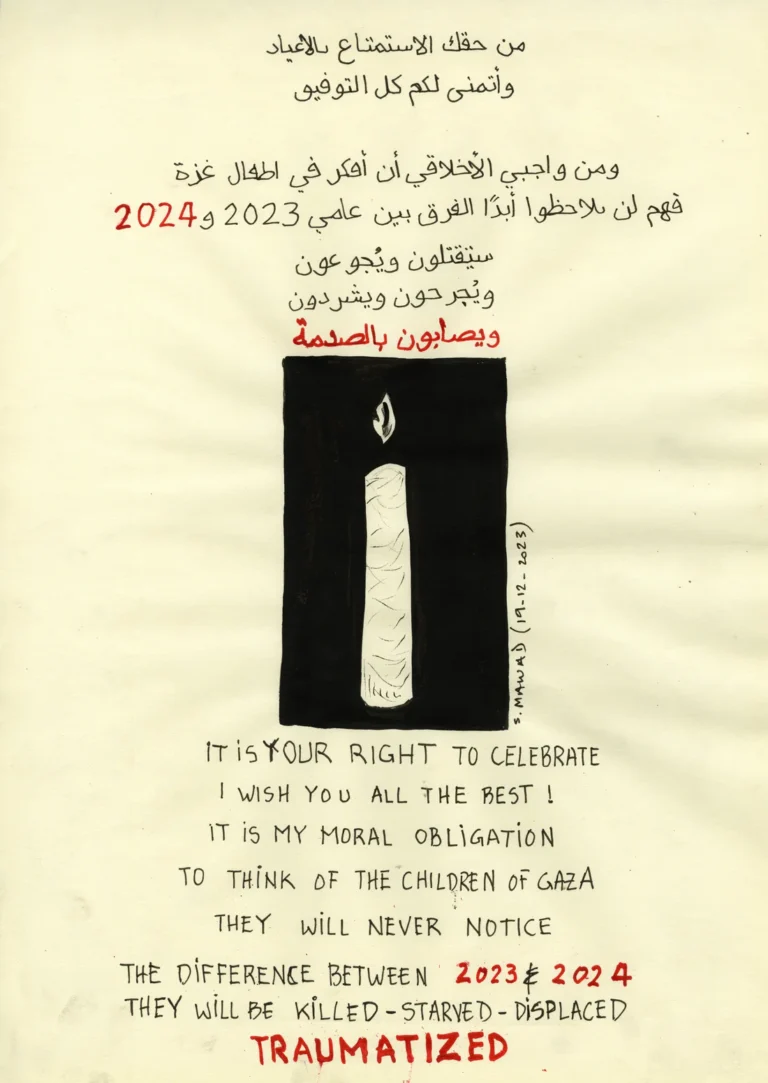 من حقك الاستمتاع بالأعياد
وأتمنى لكم كل التوفيق
ومن واجبي الأخلاقي أن أفكر في اطفال غزة
فهم لن يلاحظوا أبدًا الفرق بين عامي 2023 و2024
سيُقتلون ويُجوعون
ويُجرحون ويشردون
ويصابون بالصدمة
S. MAWAD (19-12-2023)
IT iS YOUR RIGHT TO CELEBRATE
I WISH YOU ALL THE BEST !
IT iS MY MORAL OBLIGATION
TO THINK OF THE CHILDREN OF GAZA
THEY WILL NEVER NOTICE
THE DIFFERENCE BETWEEN 2023 & 2024
THEY WILL BE KILLED - STARVED - DISPLACED
TRAUMATIZED